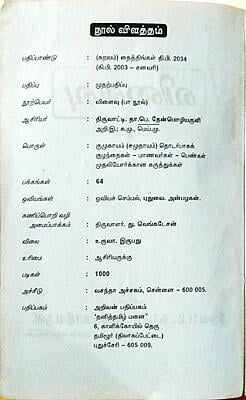 நூல் விளத்தம்
பதிப்பாண்டு : (சுறவம்) தைத்திங்கள் தி.பி. 2034
(கி.பி. 2003 – சனவரி)
பதிப்பு : முதற்பதிப்பு
நூற்பெயர் : விளைவு (பா நூல்)
ஆசிரியர் : திருவாட்டி. தா.பெ. தேன்மொழியகுளி
அறி.இ; க.மு., மெய்.மு.
பொருள் : குமுகாயம் (சமுதாயம்) தொடர்பாகக்
குழந்தைகள் – மாணவர்கள் – பெண்கள்
முதலியோர்க்கான கருத்துக்கள்
பக்கங்கள் : 64
ஓவியங்கள் : ஓவியச் செம்மல், புதுவை. அன்பழகன்.
கணிப்பொறி வழி
அமைப்பாக்கம் : திருவாளர். து. வெங்கடேசன்
விலை : உருவா. இருபது
உரிமை : ஆசிரியருக்கு
படிகள் : 1000
அச்சீடு : வசந்தா அச்சகம், சென்னை – 600 005.
பதிப்பகம் : அறிவன் பதிப்பகம்
"தனித்தமிழ் மனை"
6, காளிக்கோயில் தெரு
தமிழூர் (திலாசுப்பேட்டை)
புதுச்சேரி – 605 009.